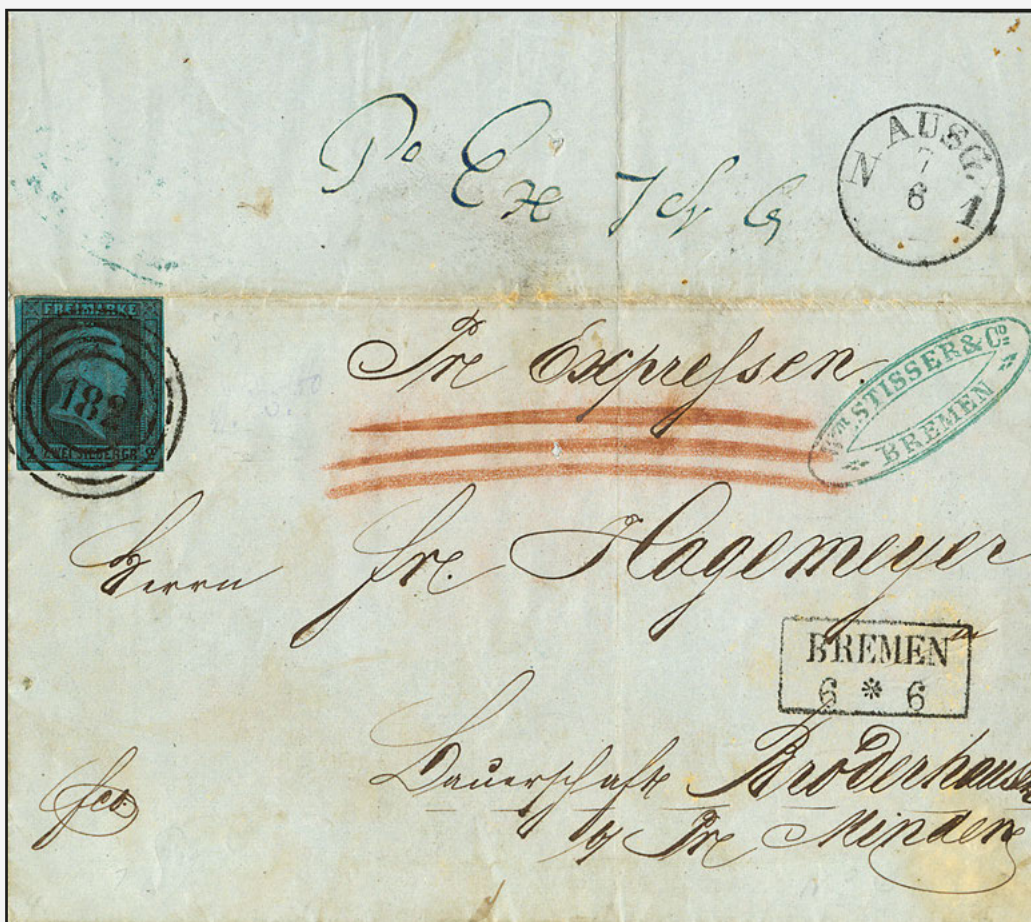 AUSG.
7
6
N 1
Po Ex
FREIMARKE
ZWEI SILBERGR.
Pre Expreſsen.
Wm. STISSER & Co.
BREMEN
Herrn Fre. Hagemeyer
in
BREMEN
6 * 6
Bauerschaft Bröderhausen
b/ Pr Minden
fco.